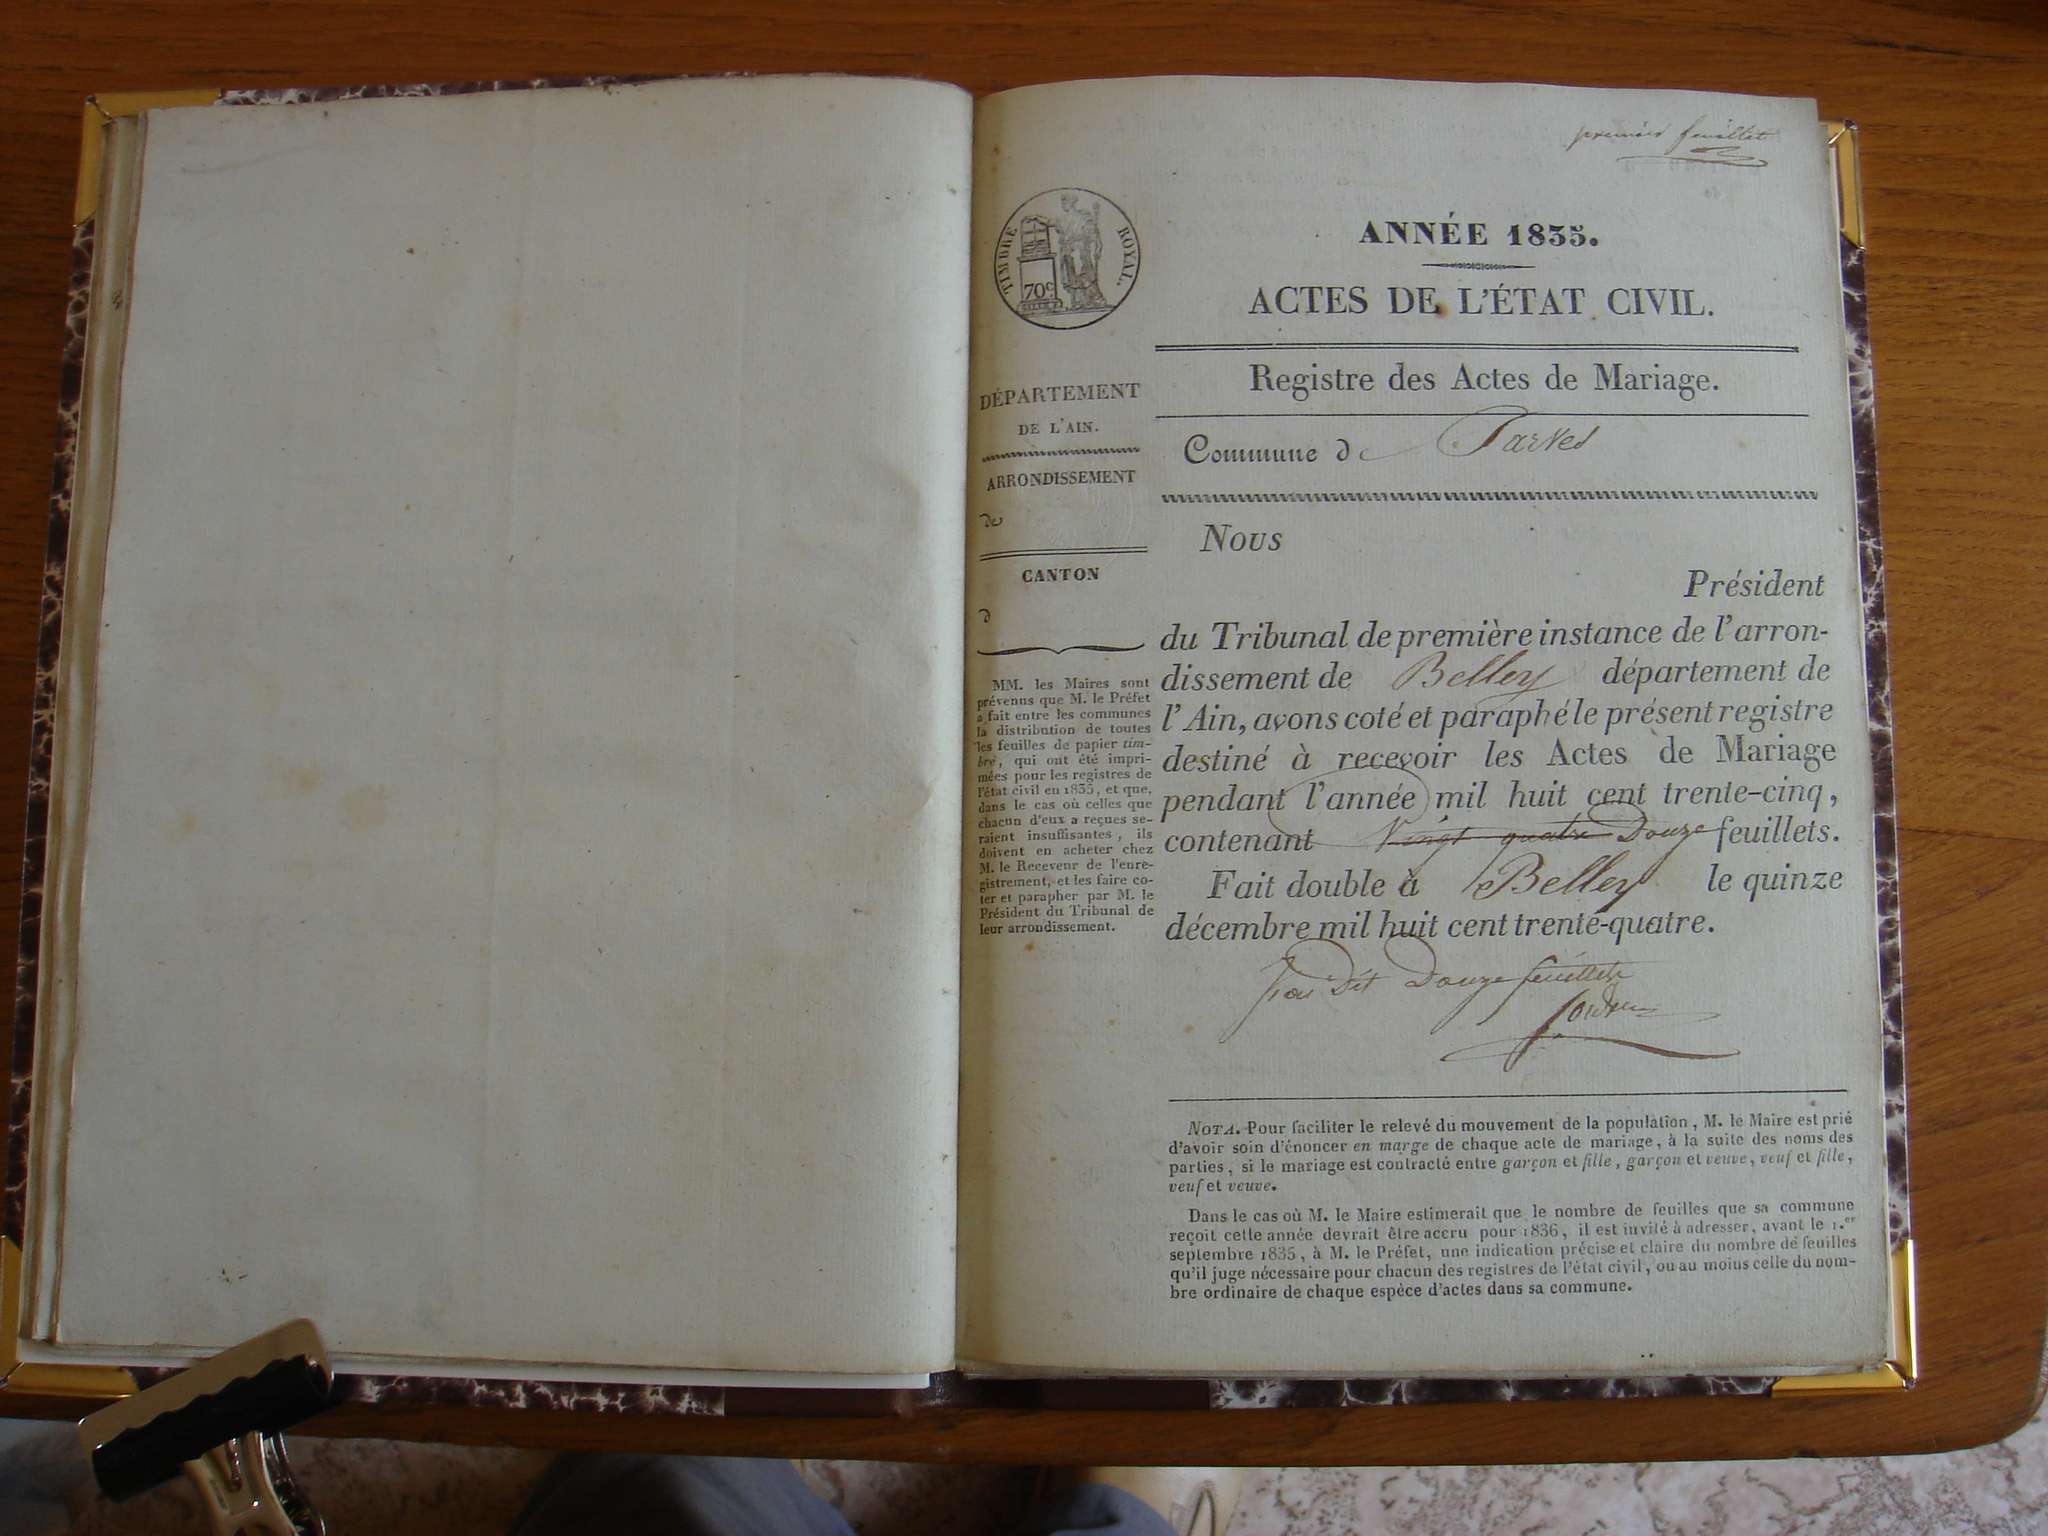 premier feuillet
TIMBRE ROYAL
70c
ANNÉE 1835.
ACTES DE L'ÉTAT CIVIL.
Registre des Actes de Mariage.
Commune de Parves
DÉPARTEMENT
DE L'AIN.
ARRONDISSEMENT
de
CANTON
d
MM. les Maires sont
prévenus que M. le Préfet
a fait entre les communes
la distribution de toutes
les feuilles de papier tim-
bré, qui ont été impri-
mées pour les registres de
l'état civil en 1835, et que,
dans le cas où celles que
chacun d'eux a reçues se-
raient insuffisantes, ils
doivent en acheter chez
M. le Receveur de l'enre-
gistrement, et les faire co-
ter et parapher par M. le
Président du Tribunal de
leur arrondissement.
Nous
Président
du Tribunal de première instance de l'arron-
dissement de Belley département de
l'Ain, avons coté et paraphé le présent registre
destiné à recevoir les Actes de Mariage
pendant l'année mil huit cent trente-cinq,
contenant Vingt quatre Douze feuillets.
Fait double à Belley le quinze
décembre mil huit cent trente-quatre.
Dit Douze feuillets
NOTA. Pour faciliter le relevé du mouvement de la population, M. le Maire est prié
d'avoir soin d'énoncer en marge de chaque acte de mariage, à la suite des noms des
parties, si le mariage est contracté entre garçon et fille, garçon et veuve, veuf et fille,
veuf et veuve.
Dans le cas où M. le Maire estimerait que le nombre de feuilles que sa commune
reçoit cette année devrait être accru pour 1836, il est invité à adresser, avant le 1.er
septembre 1835, à M. le Préfet, une indication précise et claire du nombre de feuilles
qu'il juge nécessaire pour chacun des registres de l'état civil, ou au moins celle du nom-
bre ordinaire de chaque espèce d'actes dans sa commune.